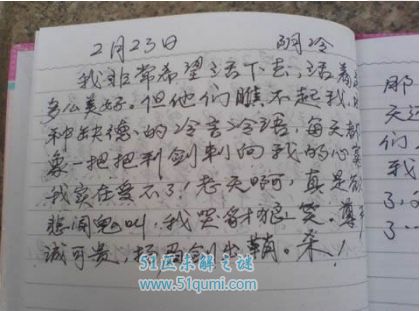 2月23日 阴冷
我非常希望活下去，活着
多么美好。但他们瞧不起我，
种缺德的冷言冷语，每天都
象一把把利剑刺向我的心
我实在受不了！老天啊，真是
悲闻鬼叫，我哭豺狼笑。尊
诚可贵，扬眉剑出鞘。杀！
那
天
们
51区未解之谜
www.51qumi.com